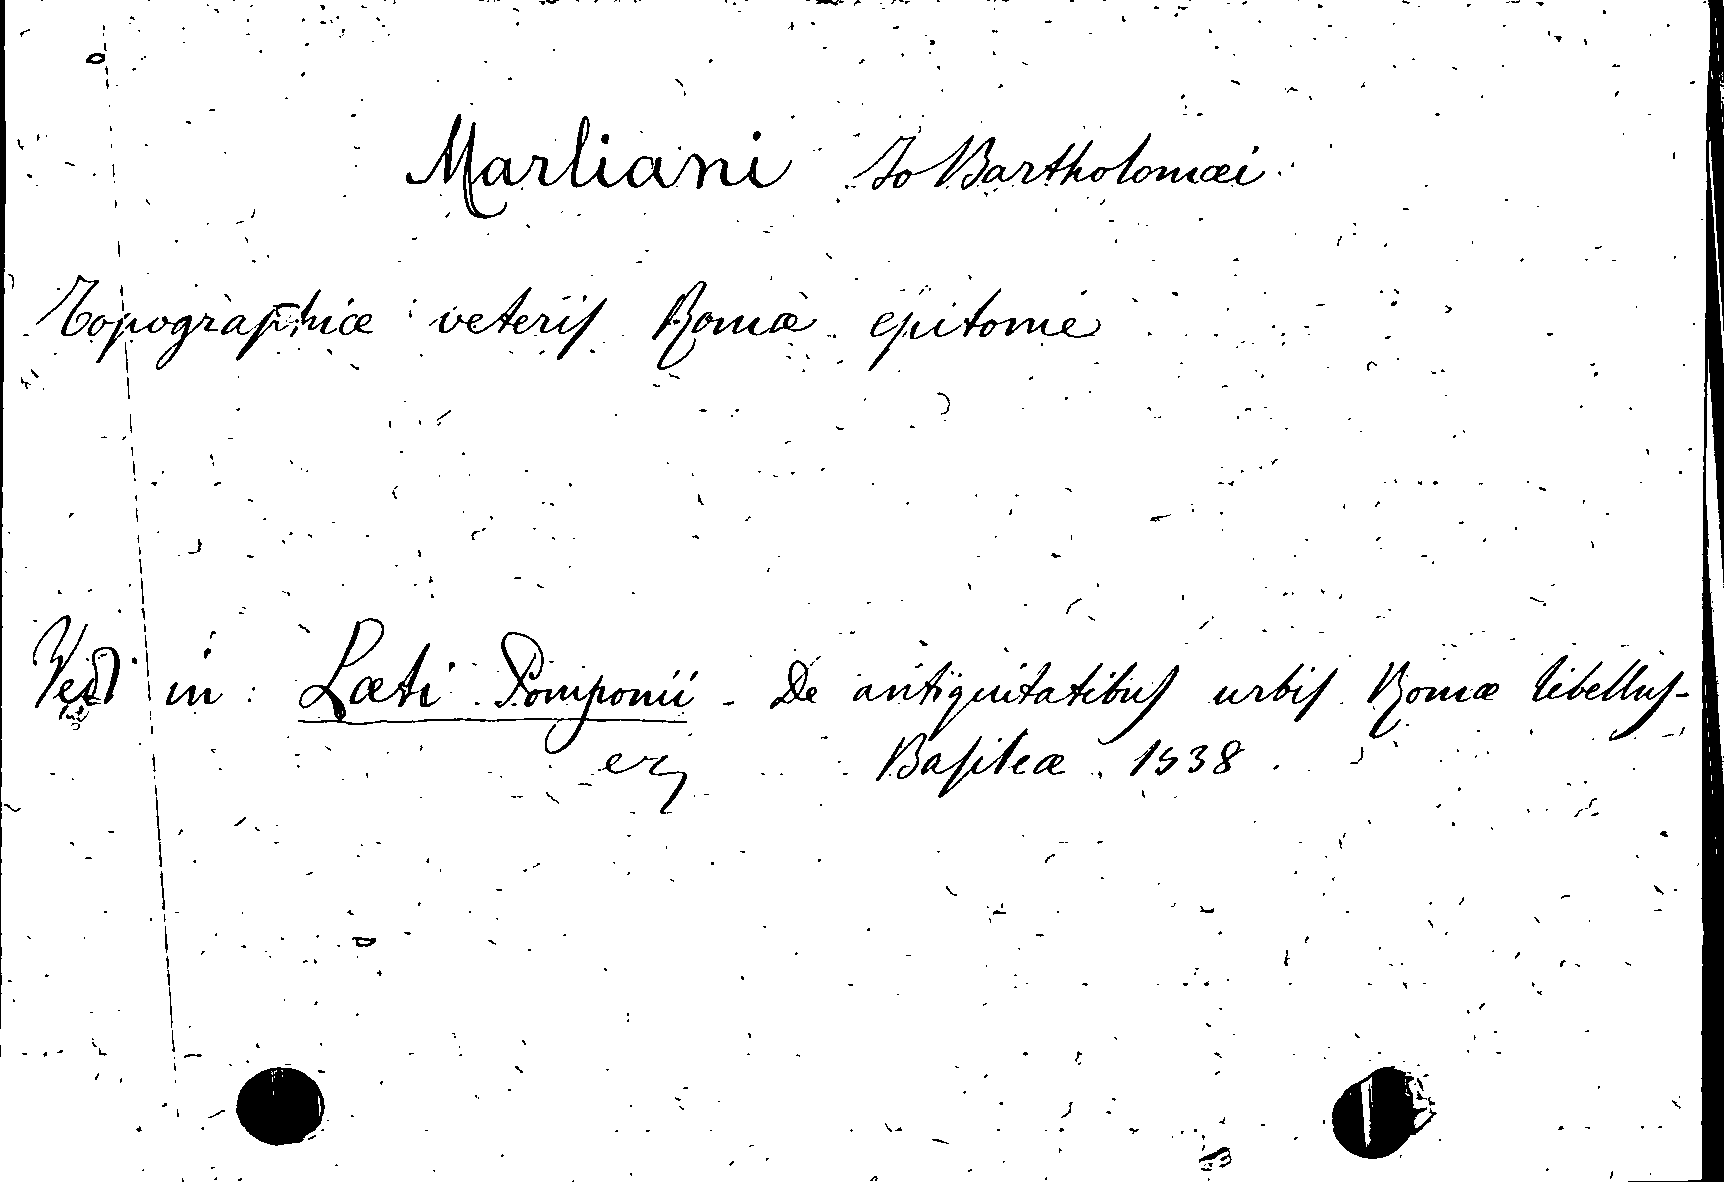 Marliani Jo Bartholomæi
Topographiæ veteris Romæ epitome
Vedi in : Læti Pomponii - De antiquitatibus urbis Romæ libellus -
Basileæ 1538